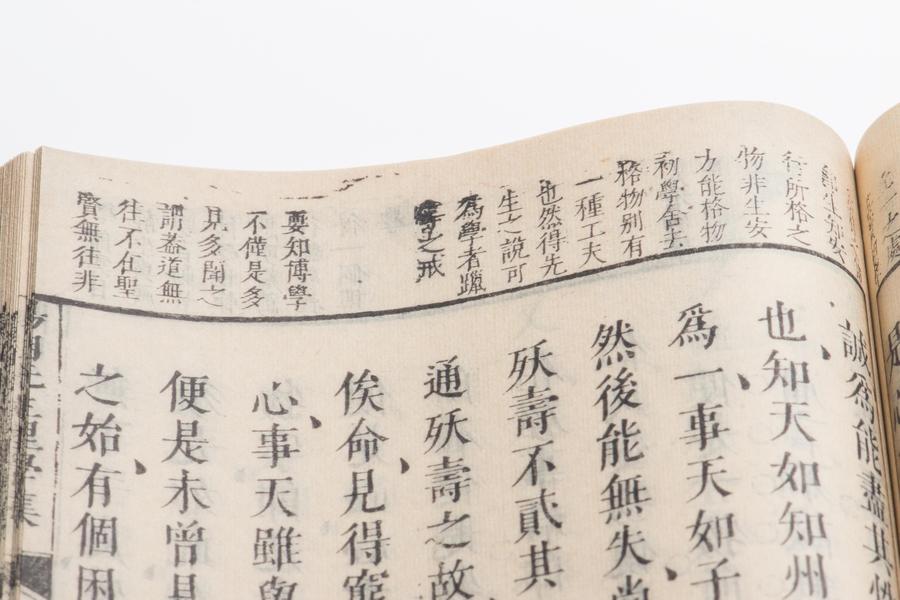 行所格之
物非生安
方能格物
初學舍去
格物別有
一種工夫
也然得先
生之說可
為學者躐
等之戒
要知博學
不僅是多
見多聞之
謂蓋道無
往不在聖
賢無往非
誠為能盡其
也知天如知州
為一事天如子
然後能無失尚
殀壽不貳其
通殀壽之故
俟命見得窮
心事天雖與
便是未曾見
之始有個困